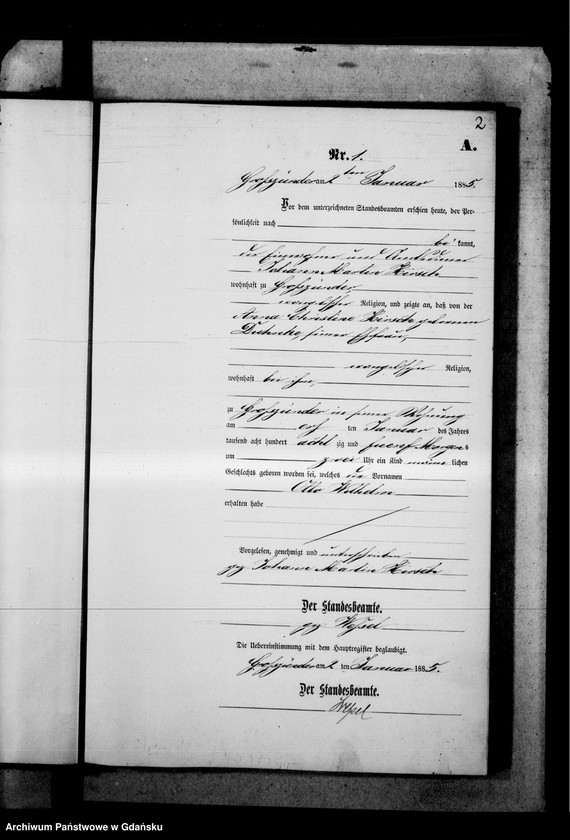 2
A.
Nr. 1.
Großzünder am 2 ten Januar 1885.
Vor dem unterzeichneten Standesbeamten erschien heute, der Per-
sönlichkeit nach
be kannt,
der Einwohner und Amtsdiener
Johann Martin Hirsch
wohnhaft zu Großzünder
evangelischer Religion, und zeigte an, daß von der
Anna Christine Hirsch geborenen
seiner Ehefrau,
evangelischer Religion,
wohnhaft bei ihm,
zu Großzünder in seiner Wohnung
am ersten Januar des Jahres
tausend acht hundert acht zig und fuenf Morgens
um zwei Uhr ein Kind männlichen
Geschlechts geboren worden sei, welches die Vornamen
Otto Wilhelm
erhalten habe
Vorgelesen, genehmigt und unterschrieben
gez. Johann Martin Hirsch
Der Standesbeamte.
gez. Wessel
Die Uebereinstimmung mit dem Hauptregister beglaubigt.
Großzünder am 2 ten Januar 1885.
Der Standesbeamte.
Wessel
Archiwum Państwowe w Gdańsku